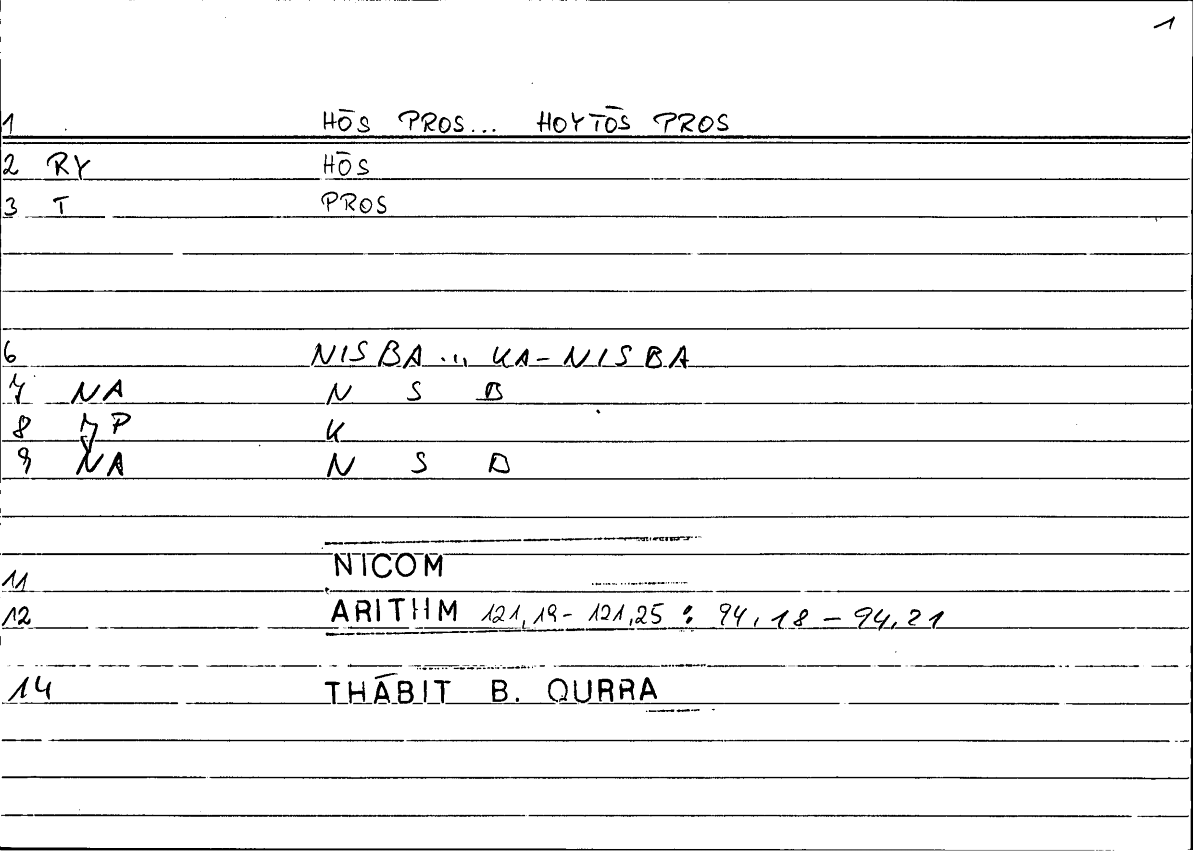 1
1 HŌS PROS... HOYTŌS PROS
2 RY HŌS
3 T PROS
6 NISBA ... KA-NISBA
7 NA N S B
8 P K
9 NA N S B
11 NICOM
12 ARITHM 121,19-121,25 : 94,18-94,21
14 THĀBIT B. QURRA